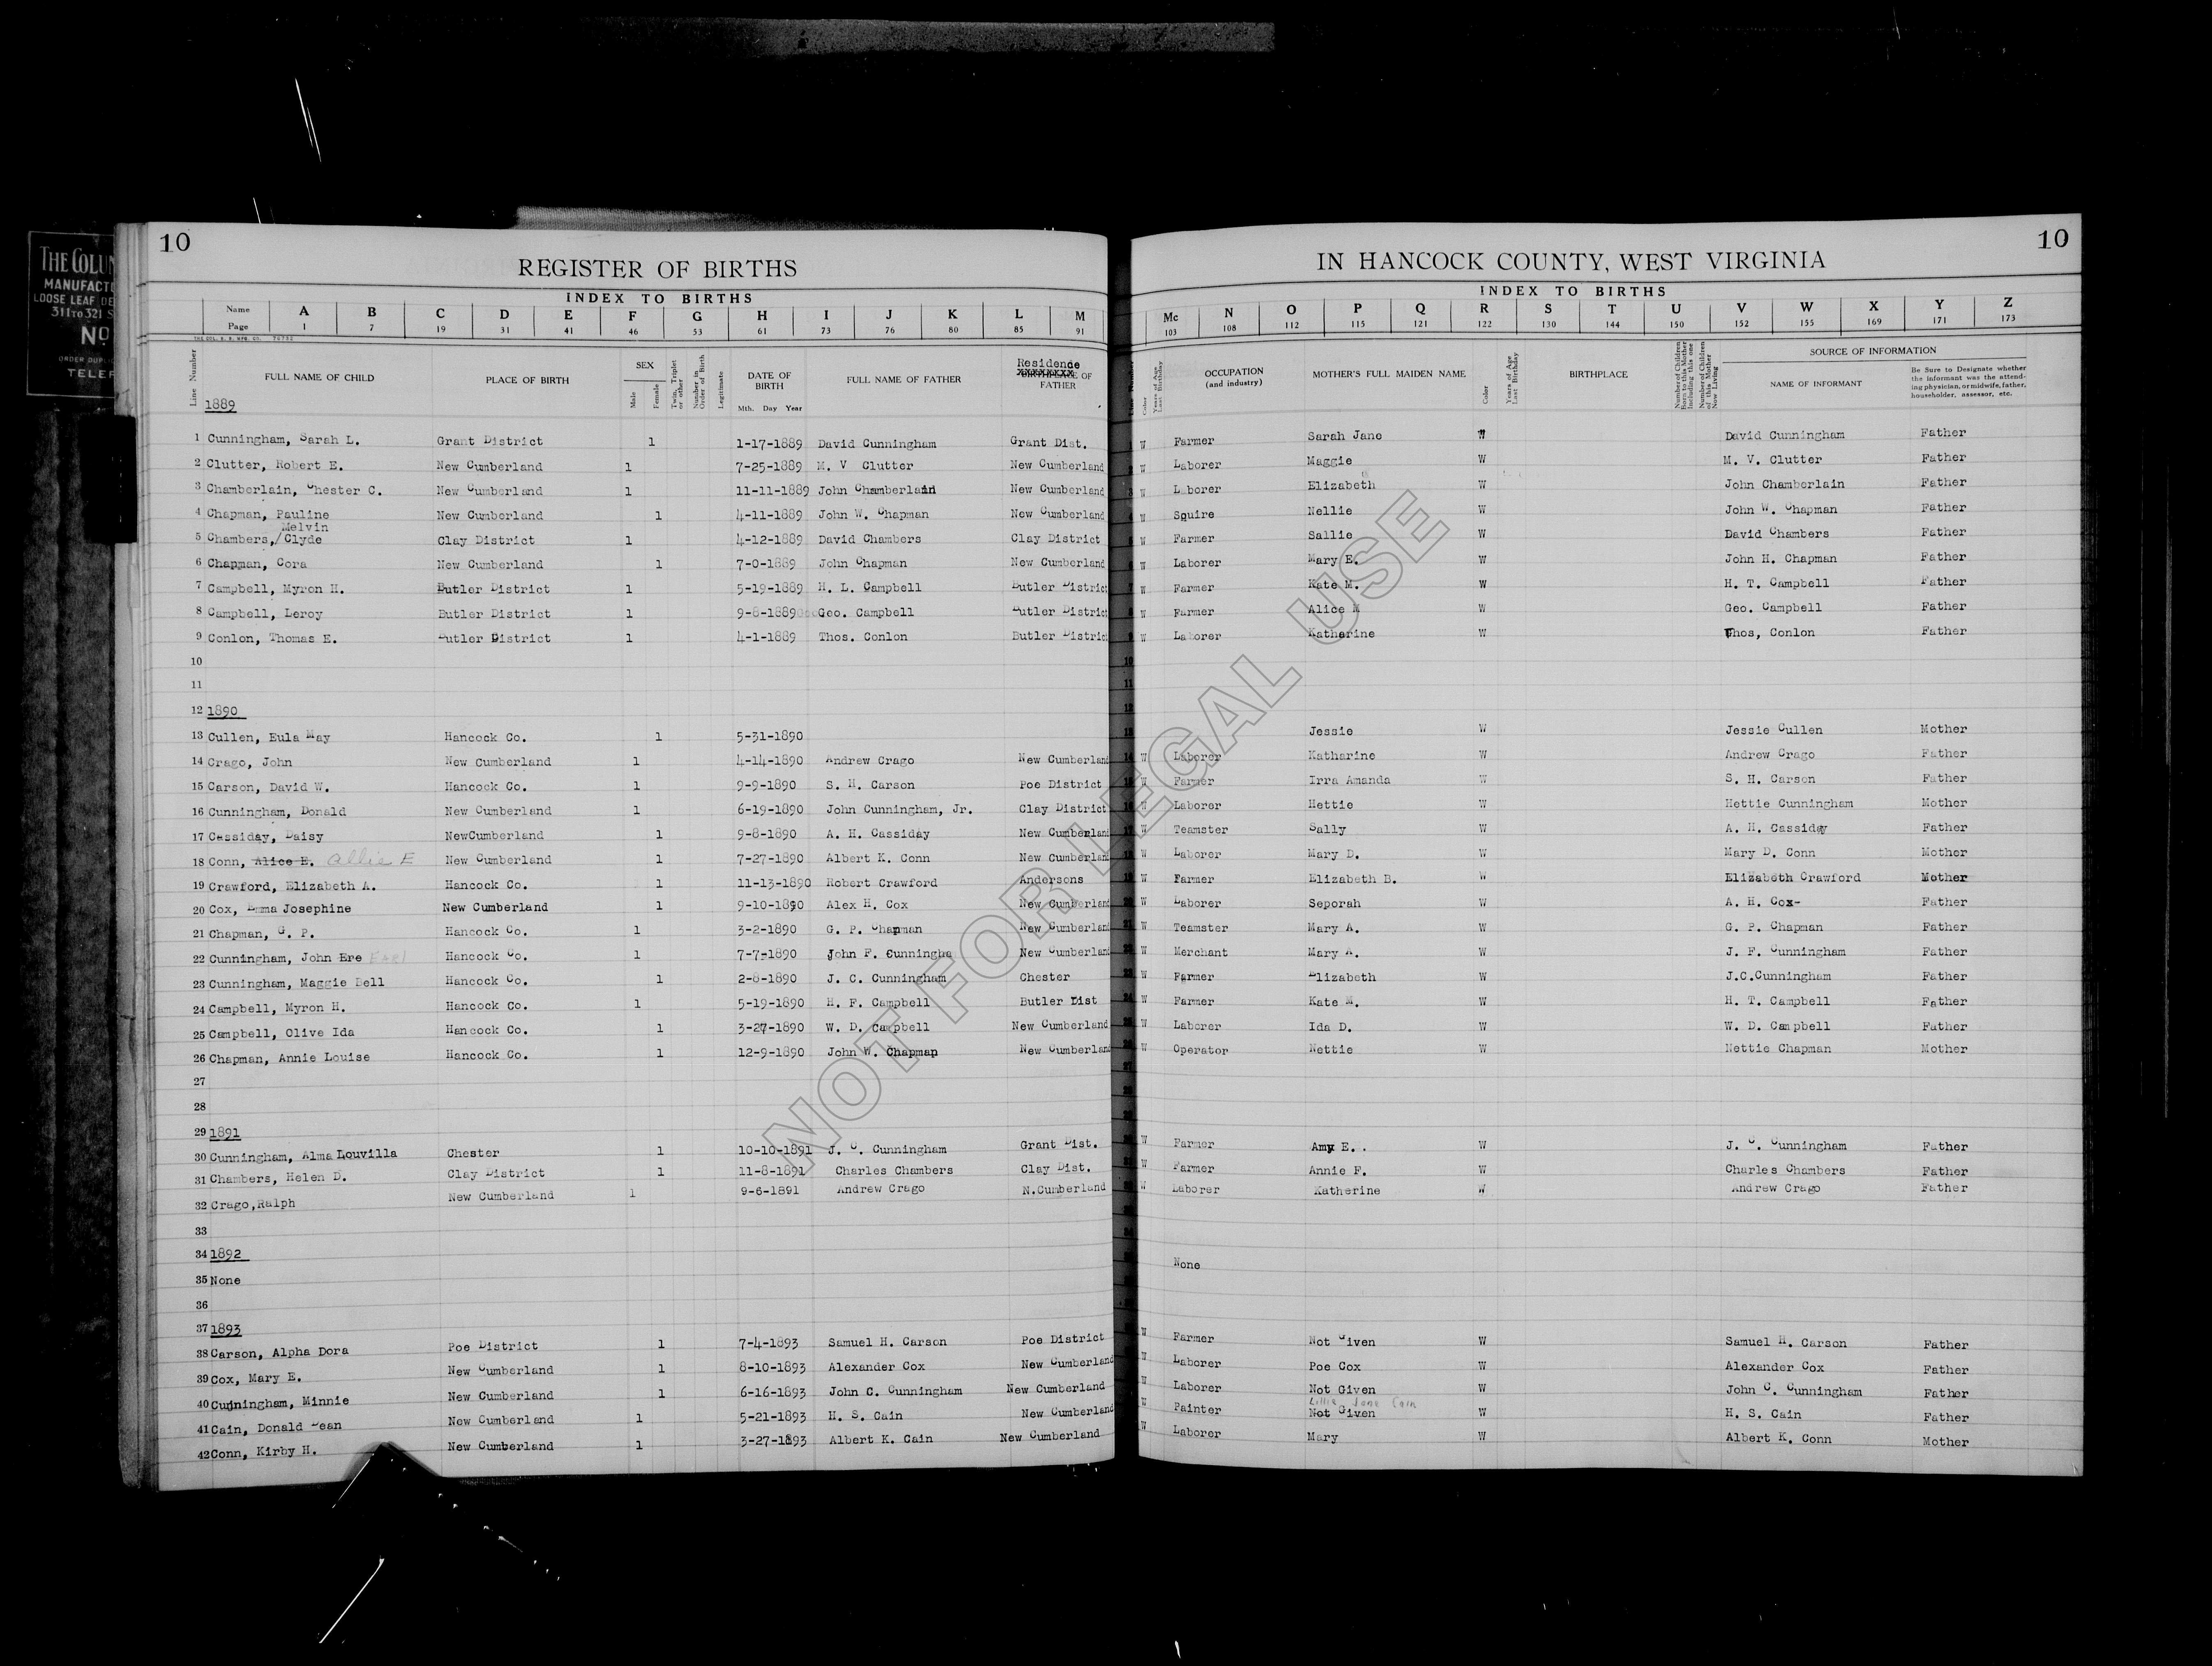 THE COLU
MANUFACT
LOOSE LEAF DE
311 TO 321 S
NO
ORDER DUPLI
TELEP
10
REGISTER OF BIRTHS
INDEX TO BIRTHS
Name A B C D E F G H I J K L M
Page 1 7 19 31 41 46 53 61 73 76 80 85 91
IN HANCOCK COUNTY, WEST VIRGINIA
10
INDEX TO BIRTHS
Mc N O P Q R S T U V W X Y Z
103 108 112 115 121 122 130 144 150 152 155 169 171 173
Line Number FULL NAME OF CHILD PLACE OF BIRTH SEX Male Female Twin, Triplet or other Number in Order of Birth Legitimate DATE OF BIRTH Mth. Day Year FULL NAME OF FATHER Residende BIRTHPLACE OF FATHER
Color Years of Age Last Birthday OCCUPATION (and industry) MOTHER'S FULL MAIDEN NAME Color Years of Age Last Birthday BIRTHPLACE Number of Children Born to this Mother Including this one Number of Children of this Mother Now Living SOURCE OF INFORMATION NAME OF INFORMANT Be Sure to Designate whether the informant was the attending physician, or midwife, father, householder, assessor, etc.
1889
1 Cunningham, Sarah L. Grant District 1 1-17-1889 David Cunningham Grant Dist. W Farmer Sarah Jane W David Cunningham Father
2 Clutter, Robert E. New Cumberland 1 7-25-1889 M. V Clutter New Cumberland W Laborer Maggie W M. V. Clutter Father
3 Chamberlain, Chester C. New Cumberland 1 11-11-1889 John Chamberlain New Cumberland W Laborer Elizabeth W John Chamberlain Father
4 Chapman, Pauline New Cumberland 1 4-11-1889 John W. Chapman New Cumberland W Squire Nellie W John W. Chapman Father
Melvin
5 Chambers,/Clyde Clay District 1 4-12-1889 David Chambers Clay District W Farmer Sallie W David Chambers Father
6 Chapman, Cora New Cumberland 1 7-0-1889 John Chapman New Cumberland W Laborer Mary E. W John H. Chapman Father
7 Campbell, Myron H. Butler District 1 5-19-1889 H. L. Campbell Butler District W Farmer Kate M. W H. T. Campbell Father
8 Campbell, Leroy Butler District 1 9-8-1889 Geo. Campbell Butler District W Farmer Alice M W Geo. Campbell Father
9 Conlon, Thomas E. Butler District 1 4-1-1889 Thos. Conlon Butler District W Laborer Katherine W Thos, Conlon Father
10
11
12 1890
13 Cullen, Eula May Hancock Co. 1 5-31-1890 Jessie W Jessie Cullen Mother
14 Crago, John New Cumberland 1 4-14-1890 Andrew Crago New Cumberland W Laborer Katharine W Andrew Crago Father
15 Carson, David W. Hancock Co. 1 9-9-1890 S. H. Carson Poe District W Farmer Irra Amanda W S. H. Carson Father
16 Cunningham, Donald New Cumberland 1 6-19-1890 John Cunningham, Jr. Clay District W Laborer Hettie W Hettie Cunningham Mother
17 Cassiday, Daisy NewCumberland 1 9-8-1890 A. H. Cassiday New Cumberland W Teamster Sally W A. H. Cassiday Father
18 Conn, Alice E. Allie E New Cumberland 1 7-27-1890 Albert K. Conn New Cumberland W Laborer Mary D. W Mary D. Conn Mother
19 Crawford, Elizabeth A. Hancock Co. 1 11-13-1890 Robert Crawford Andersons W Farmer Elizabeth B. W Elizabeth Crawford Mother
20 Cox, Emma Josephine New Cumberland 1 9-10-1890 Alex H. Cox New Cumberland W Laborer Seporah W A. H. Cox- Father
21 Chapman, G. P. Hancock Co. 1 3-2-1890 G. P. Chapman New Cumberland W Teamster Mary A. W G. P. Chapman Father
22 Cunningham, John Ere Earl Hancock Co. 1 7-7-1890 John F. Cunningha New Cumberland W Merchant Mary A. W J. F. Cunningham Father
23 Cunningham, Maggie Bell Hancock Co. 1 2-8-1890 J. C. Cunningham Chester W Farmer Elizabeth W J.C.Cunningham Father
24 Campbell, Myron H. Hancock Co. 1 5-19-1890 H. F. Campbell Butler Dist W Farmer Kate M. W H. T. Campbell Father
25 Campbell, Olive Ida Hancock Co. 1 3-27-1890 W. D. Campbell New Cumberland W Laborer Ida D. W W. D. Campbell Father
26 Chapman, Annie Louise Hancock Co. 1 12-9-1890 John W. Chapman New Cumberland W Operator Nettie W Nettie Chapman Mother
27
28
29 1891
30 Cunningham, Alma Louvilla Chester 1 10-10-1891 J. C. Cunningham Grant Dist. W Farmer Amy E. . W J. C. Cunningham Father
31 Chambers, Helen D. Clay District 1 11-8-1891 Charles Chambers Clay Dist. W Farmer Annie F. W Charles Chambers Father
32 Crago,Ralph New Cumberland 1 9-6-1891 Andrew Crago N.Cumberland W Laborer Katherine W Andrew Crago Father
33
34 1892
35 None None
36
37 1893
38 Carson, Alpha Dora Poe District 1 7-4-1893 Samuel H. Carson Poe District W Farmer Not Given W Samuel H. Carson Father
39 Cox, Mary E. New Cumberland 1 8-10-1893 Alexander Cox New Cumberland W Laborer Poe Cox W Alexander Cox Father
40 Cunningham, Minnie New Cumberland 1 6-16-1893 John C. Cunningham New Cumberland W Laborer Not Given W John C. Cunningham Father
Lillie Jane Cain
41 Cain, Donald Dean New Cumberland 1 5-21-1893 H. S. Cain New Cumberland W Painter Not Given W H. S. Cain Father
42 Conn, Kirby H. New Cumberland 1 3-27-1893 Albert K. Cain New Cumberland W Laborer Mary W Albert K. Conn Mother
NOT FOR LEGAL USE